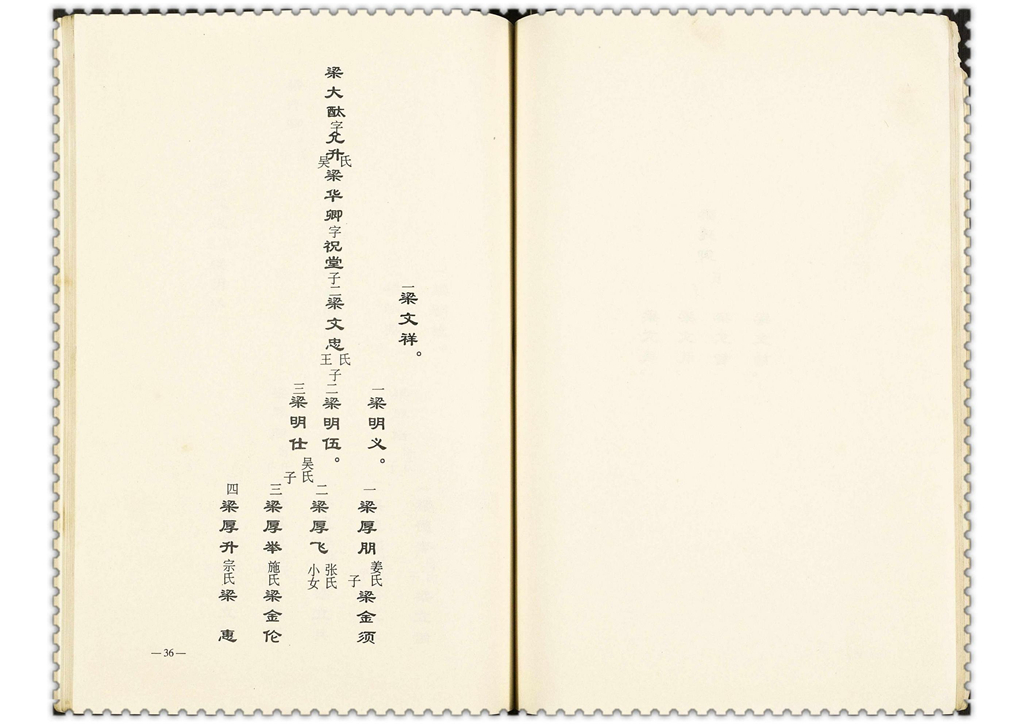 梁大猷字允升
吴氏
梁华卿字祝堂
子
一梁文祥。
二梁文忠
王氏
子
一梁明义。
二梁明伍。
三梁明仕
吴氏
子
一梁厚朋
姜氏
子
梁金须
二梁厚飞
张氏
小女
三梁厚举
施氏
梁金伦
四梁厚升
宗氏
梁惠
—36—